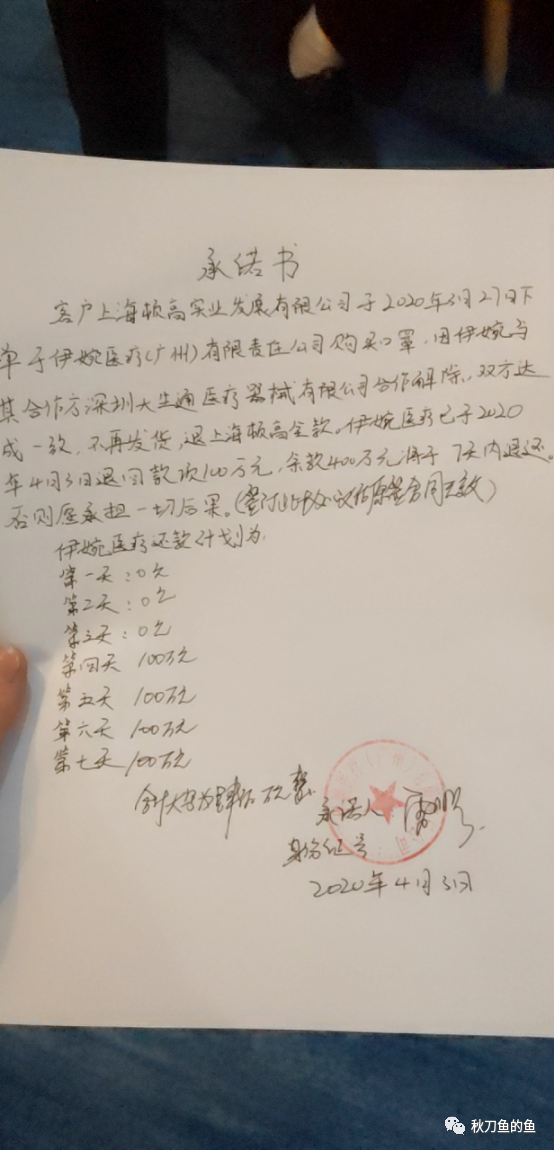 承诺书
客户上海顿高实业发展有限公司于2020年3月27日下
单于伊婉医疗(广州)有限责任公司购买口罩,因伊婉与
其合作方深圳大生通医疗器械有限公司合作解除,双方达
成一致,不再发货,退上海顿高全款。伊婉医疗已于2020
年4月3日退回款项100万元,余款400万元将于7天内退还。
否则愿承担一切后果。
伊婉医疗还款计划为:
第一天:0元
第二天:0元
第三天:0元
第四天 100万元
第五天 100万元
第六天 100万元
第七天 100万元
承诺人:
身份证号
2020年4月3日
秋刀鱼的鱼